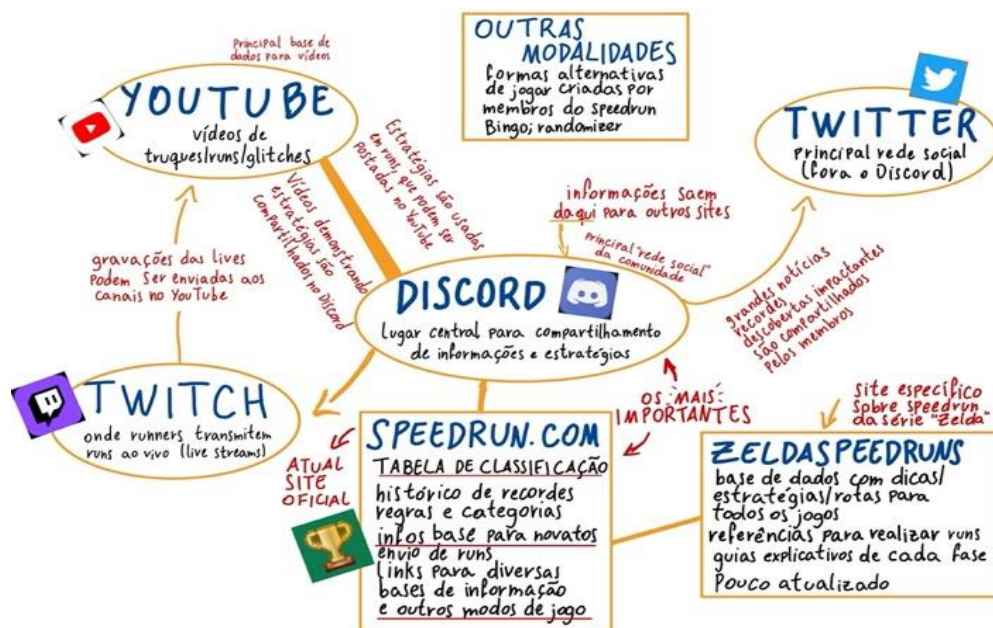 Principal base de
dados para vídeos
YOUTUBE
vídeos de
truques/runs/glitches
OUTRAS
MODALIDADES
formas alternativas
de jogar criadas por
membros do speedrun
Bingo; randomizer
TWITTER
principal rede social
(fora o Discord)
Estratégias são usadas
em runs, que podem ser
postadas no YouTube
Vídeos demonstrando
estratégias são
compartilhados no Discord
informações saem
daqui para outros sites
principal "rede social"
da comunidade
gravações das lives
Podem ser enviadas aos
canais no YouTube
DISCORD
lugar central para compartilhamento
de informações e estratégias
grandes notícias
recordes
descobertas impactantes
são compartilhados
pelos membros
TWITCH
onde runners transmitem
runs ao vivo (live streams)
OS MAIS
IMPORTANTES
site específico
sobre speedrun
da série "Zelda"
ATUAL
SITE
OFICIAL
SPEEDRUN.COM
TABELA DE CLASSIFICAÇÃO
histórico de recordes
regras e categorias
infos base para novatos
envio de runs
links para diversas
bases de informação
e outros modos de jogo
ZELDASPEEDRUNS
base de dados com dicas/
estratégias/rotas para
todos os jogos
referências para realizar runs
guias explicativos de cada fase
Pouco atualizado